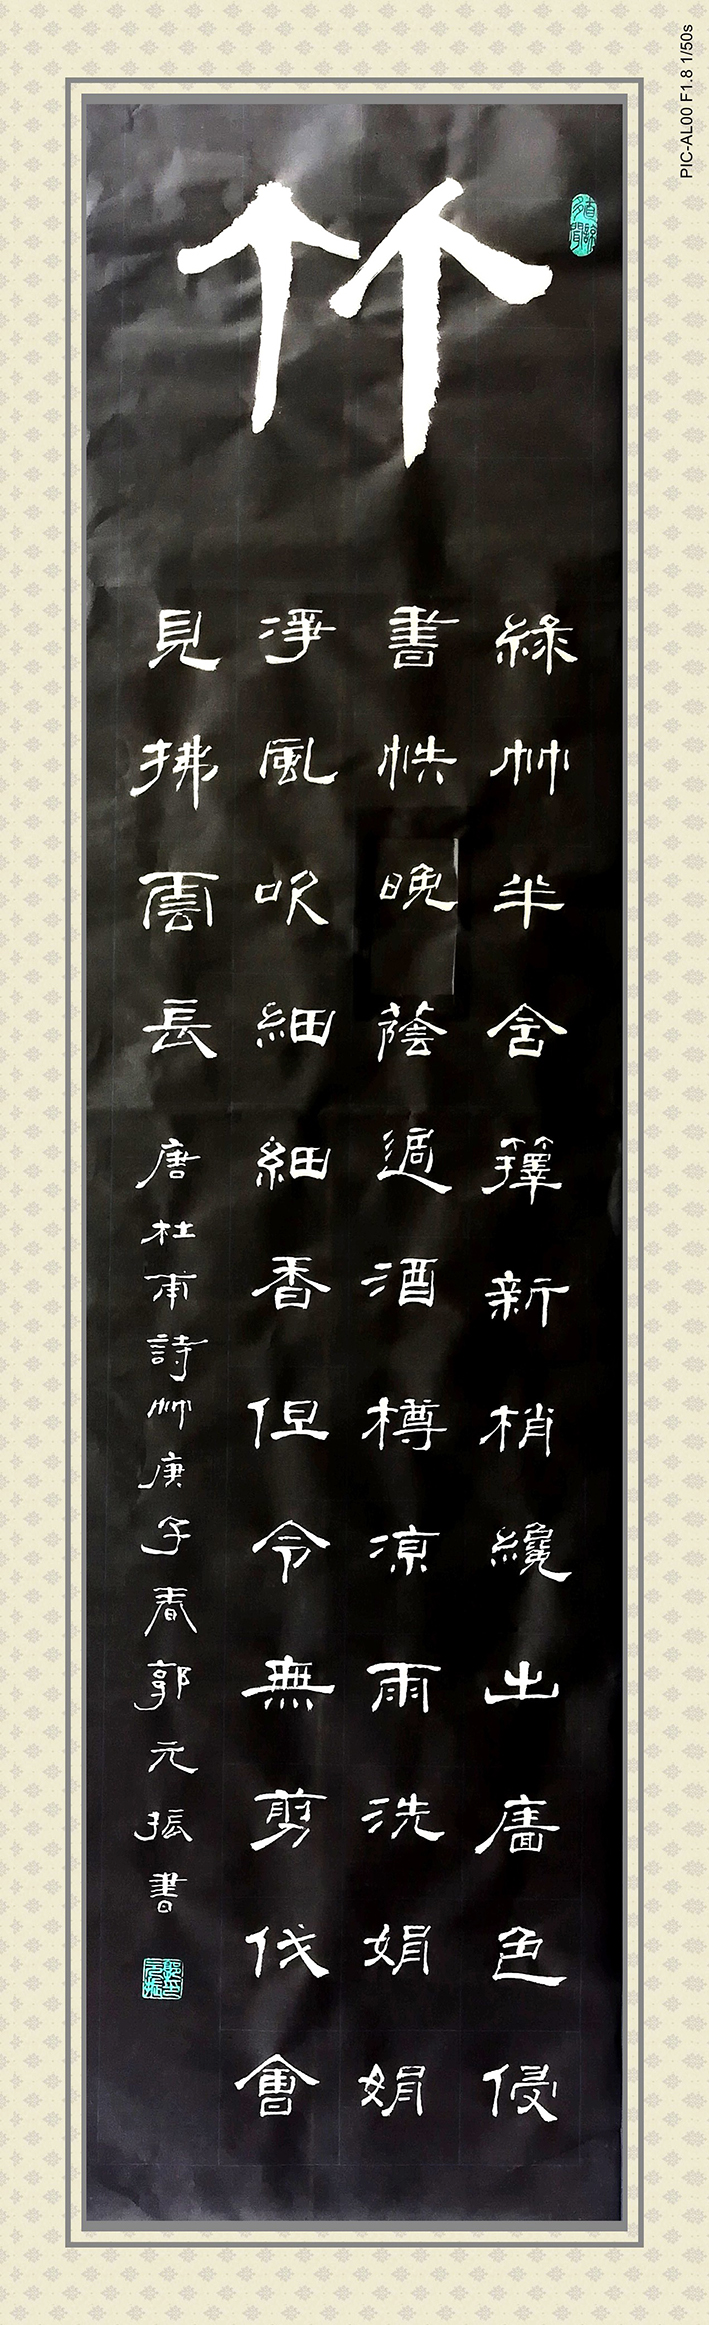 竹
綠竹半含籜新梢纔出廧色侵
書帙晚蔭過酒樽凉雨洗娟娟
淨風吹細細香但令無剪伐會
見拂雲長 唐杜甫詩竹庚子春郭元振書
郭印元振
PIC-AL00 F1.8 1/50s